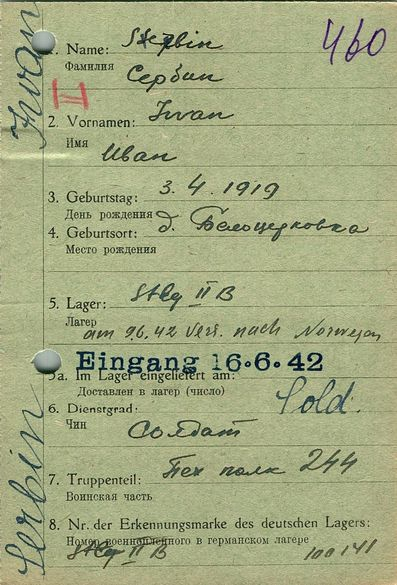 460
Iwan
Serbin
II
1. Name: Serbin
Фамилия Сербин
2. Vornamen: Iwan
Имя
Иван
3. Geburtstag: 3. 4. 1919
День рождения
4. Geburtsort: д. Белоцерковка
Место рождения
5. Lager: Stlg II B
Лагер
am 9.6.42 Vers. nach Norwegen
Eingang 16.6.42
5a. Im Lager eingeliefert am:
Доставлен в лагер (число)
6. Dienstgrad: Sold.
Чин Солдат
7. Truppenteil: Пех полк 244
Воинская часть
8. Nr. der Erkennungsmarke des deutschen Lagers:
Номер военнопленного в германском лагере
Stlg II B 100141